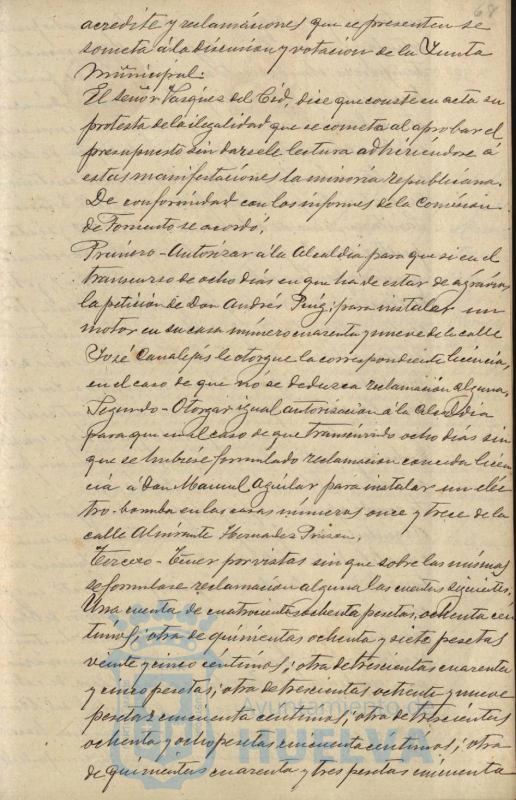 68
acredite y reclamaciones que se presenten se
someta á la discusion y votacion de la Junta
Municipal.
El señor Vazquez del Cid, dice que conste en acta su
protesta de la ilegalidad que se cometa al aprobar el
presupuesto sin darsele lectura adhiriendose á
estas manifestaciones la minoria republicana.
De conformidad con los informes de la Comision
de Fomento se acordó.
Primero - Autorizar á la Alcaldia para que si en el
transcurso de ocho dias en que ha de estar de agravios
la peticion de Don Andrés Puig; para instalar un
motor en su casa número cuarenta y nueve de la calle
José Canalejas le otorgue la correspondiente licencia,
en el caso de que no se deduzca reclamacion alguna.
Segundo - Otorgar igual autorizacion á la Alcaldia
para que en el caso de que transcurrido ocho dias sin
que se hubiese formulado reclamacion conceda licen-
cia á Don Manuel Aguilar para instalar un eléc-
tro-bomba en las casas números once y trece de la
calle Almirante Hernandez Pinzon.
Tercero - Tener por vistas sin que sobre las mismas
se formulase reclamacion alguna las cuentas siguientes.
Una cuenta de cuatrocientas ochenta pesetas, ochenta cen-
timos; otra de quinientas ochenta y siete pesetas
veinte y cinco céntimos; otra de trescientas cuarenta
y cinco pesetas; otra de trescientas ochenta y nueve
pesetas cincuenta centimos; otra de trescientas
ochenta y ocho pesetas cincuenta centimos; otra
de quinientas cuarenta y tres pesetas cincuenta
Ayuntamiento de
HUELVA